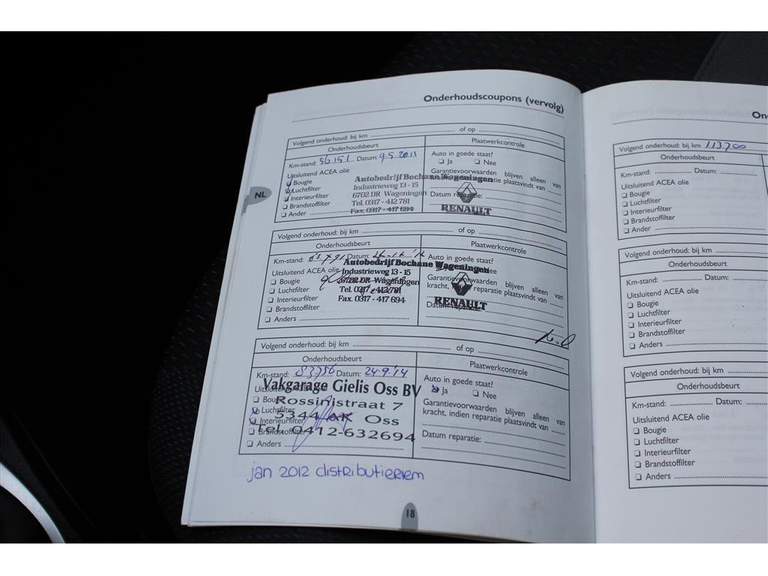 Onderhoudscoupons (vervolg)
Volgend onderhoud: bij km
of op
Onderhoudsbeurt
Plaatwerkcontrole
Km-stand: 56151 Datum: 9.5.2011
Auto in goede staat?
Ja Nee
Uitsluitend ACEA olie
Bougie
Luchtfilter
Interieurfilter
Brandstoffilter
Ander
Autobedrijf Bochane Wageningen
Industrieweg 13 - 15
6702 DR Wageningen
Tel. 0317 - 412 781
Fax. 0317 - 417 694
Garantievoorwaarden blijven alleen van
plaatsvindt van
Datum reparatie:
RENAULT
NL
Volgend onderhoud: bij km
of op
Onderhoudsbeurt
Plaatwerkcontrole
Km-stand: Datum:
Auto in goede staat?
Uitsluitend ACEA olie
Bougie
Luchtfilter
Interieurfilter
Brandstoffilter
Anders
Autobedrijf Bochane Wageningen
Industrieweg 13 - 15
6702 DR Wageningen
Tel. 0317 - 412 781
Fax. 0317 - 417 694
Garantievoorwaarden blijven alleen van
kracht, reparatie plaatsvindt van
RENAULT
Volgend onderhoud: bij km
of op
Onderhoudsbeurt
Plaatwerkcontrole
Km-stand: 83756 Datum: 24-9-'14
Auto in goede staat?
Ja Nee
Vakgarage Gielis Oss BV
Rossinistraat 7
5344 AK Oss
Tel. 0412-632694
Bougie
Luchtfilter
Interieurfilter
Brandstoffilter
Anders
Garantievoorwaarden blijven alleen van
kracht, indien reparatie plaatsvindt van
Datum reparatie:
jan 2012 distributieriem
18
On
Volgend onderhoud: bij km 113700
Onderhoudsbeurt
Km-stand: Datum:
Uitsluitend ACEA olie
Bougie
Luchtfilter
Interieurfilter
Brandstoffilter
Ander
Volgend onderhoud: bij km
Onderhoudsbeurt
Km-stand: Datum:
Uitsluitend ACEA olie
Bougie
Luchtfilter
Interieurfilter
Brandstoffilter
Anders
Volgend onderhoud: bij km
Onderhoudsbeurt
Km-stand: Datum:
Uitsluitend ACEA olie
Bougie
Luchtfilter
Interieurfilter
Brandstoffilter
Anders